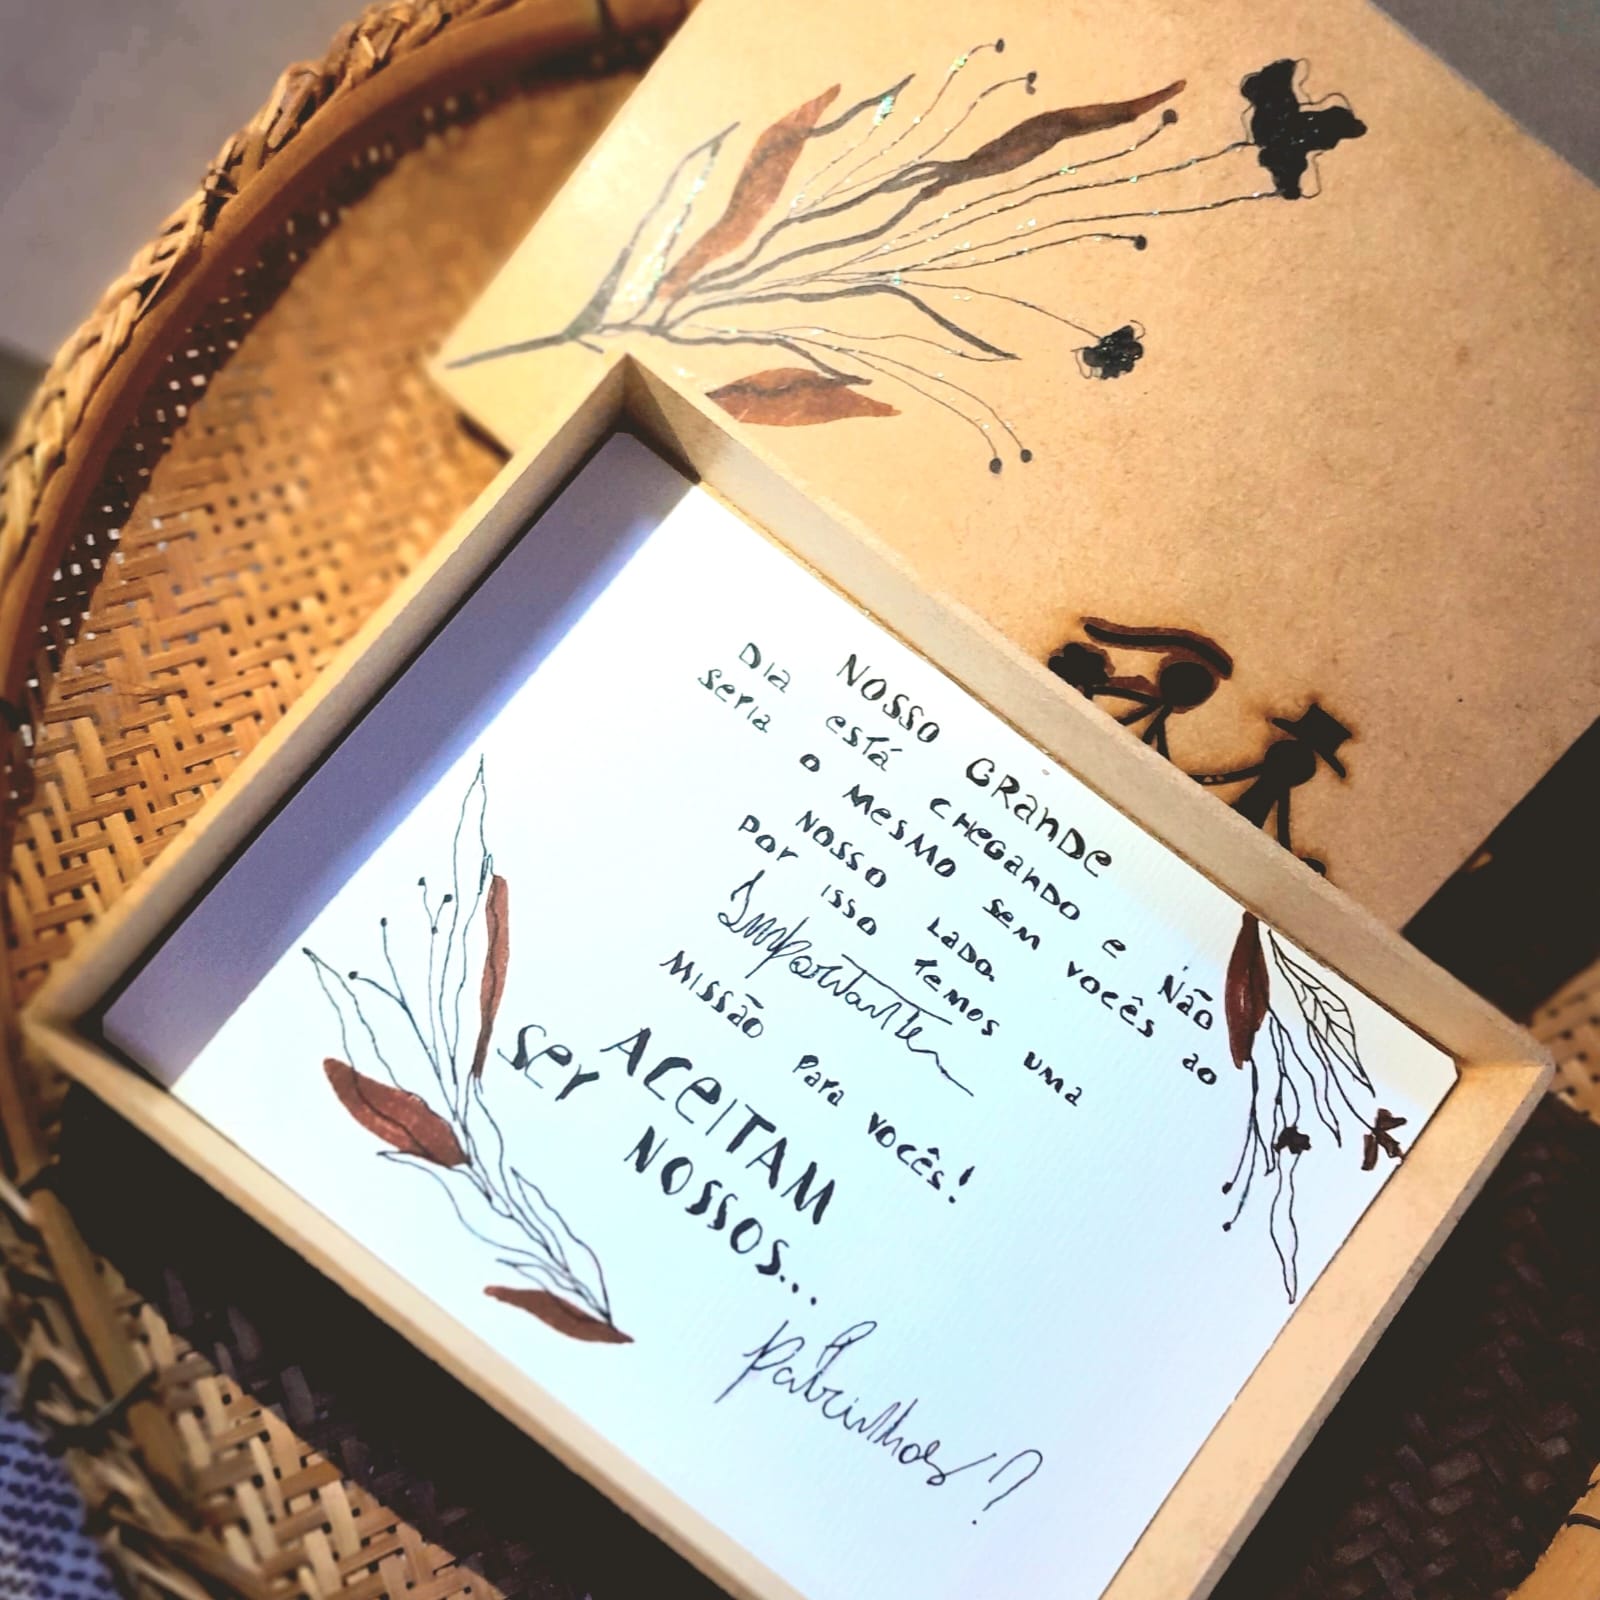 NOSSO GRANDE
DIA está CHEGANDO e NÃO
seria o MESMO sem vocês ao
NOSSO LADO
por isso temos uma
Importante
MISSÃO para vocês!
ACEITAM
ser NOSSOS...
Padrinhos?